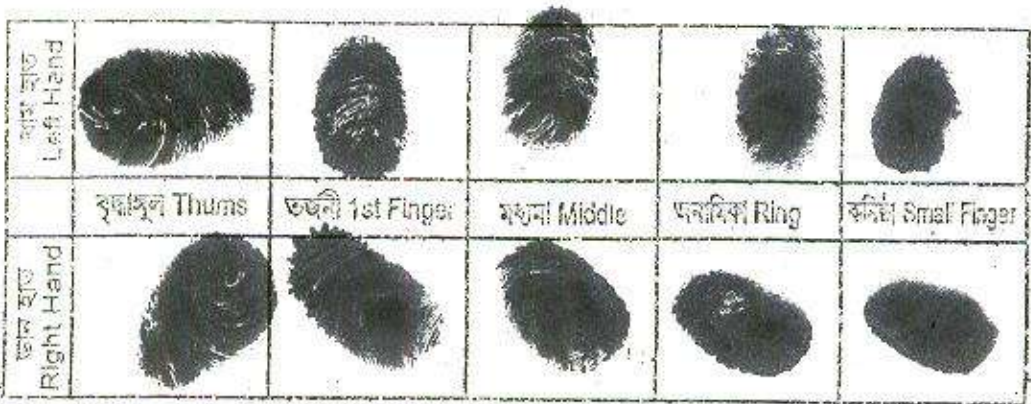 বাম হাত
Left Hand
বৃদ্ধাঙ্গুল Thums
তর্জনী 1st Finger
মধ্যমা Middle
অনামিকা Ring
কনিষ্টা Small Finger
ডান হাত
Right Hand